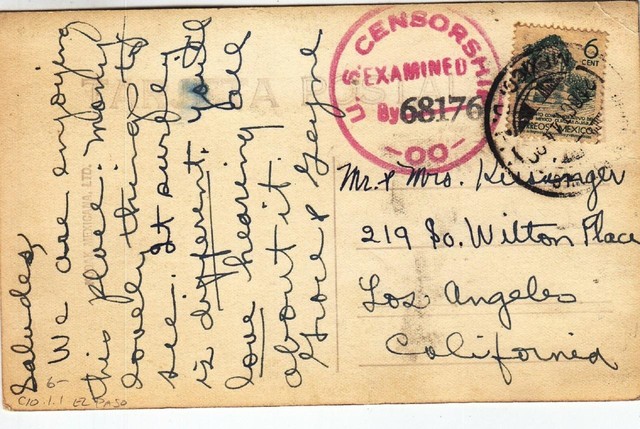 Saludes,
We are enjoying
this place. Many
lovely things to
see. It surely
is different. You'd
love hearing all
about it.
Grace & Gayne
TARJETA POSTAL
U.S. CENSORSHIP
EXAMINED
By 68176
00
6
CENT
CORREOS MEXICO
Mr. & Mrs.
219 So. Wilton Place
Los Angeles
California
6-
C10.1.1 EL PASO